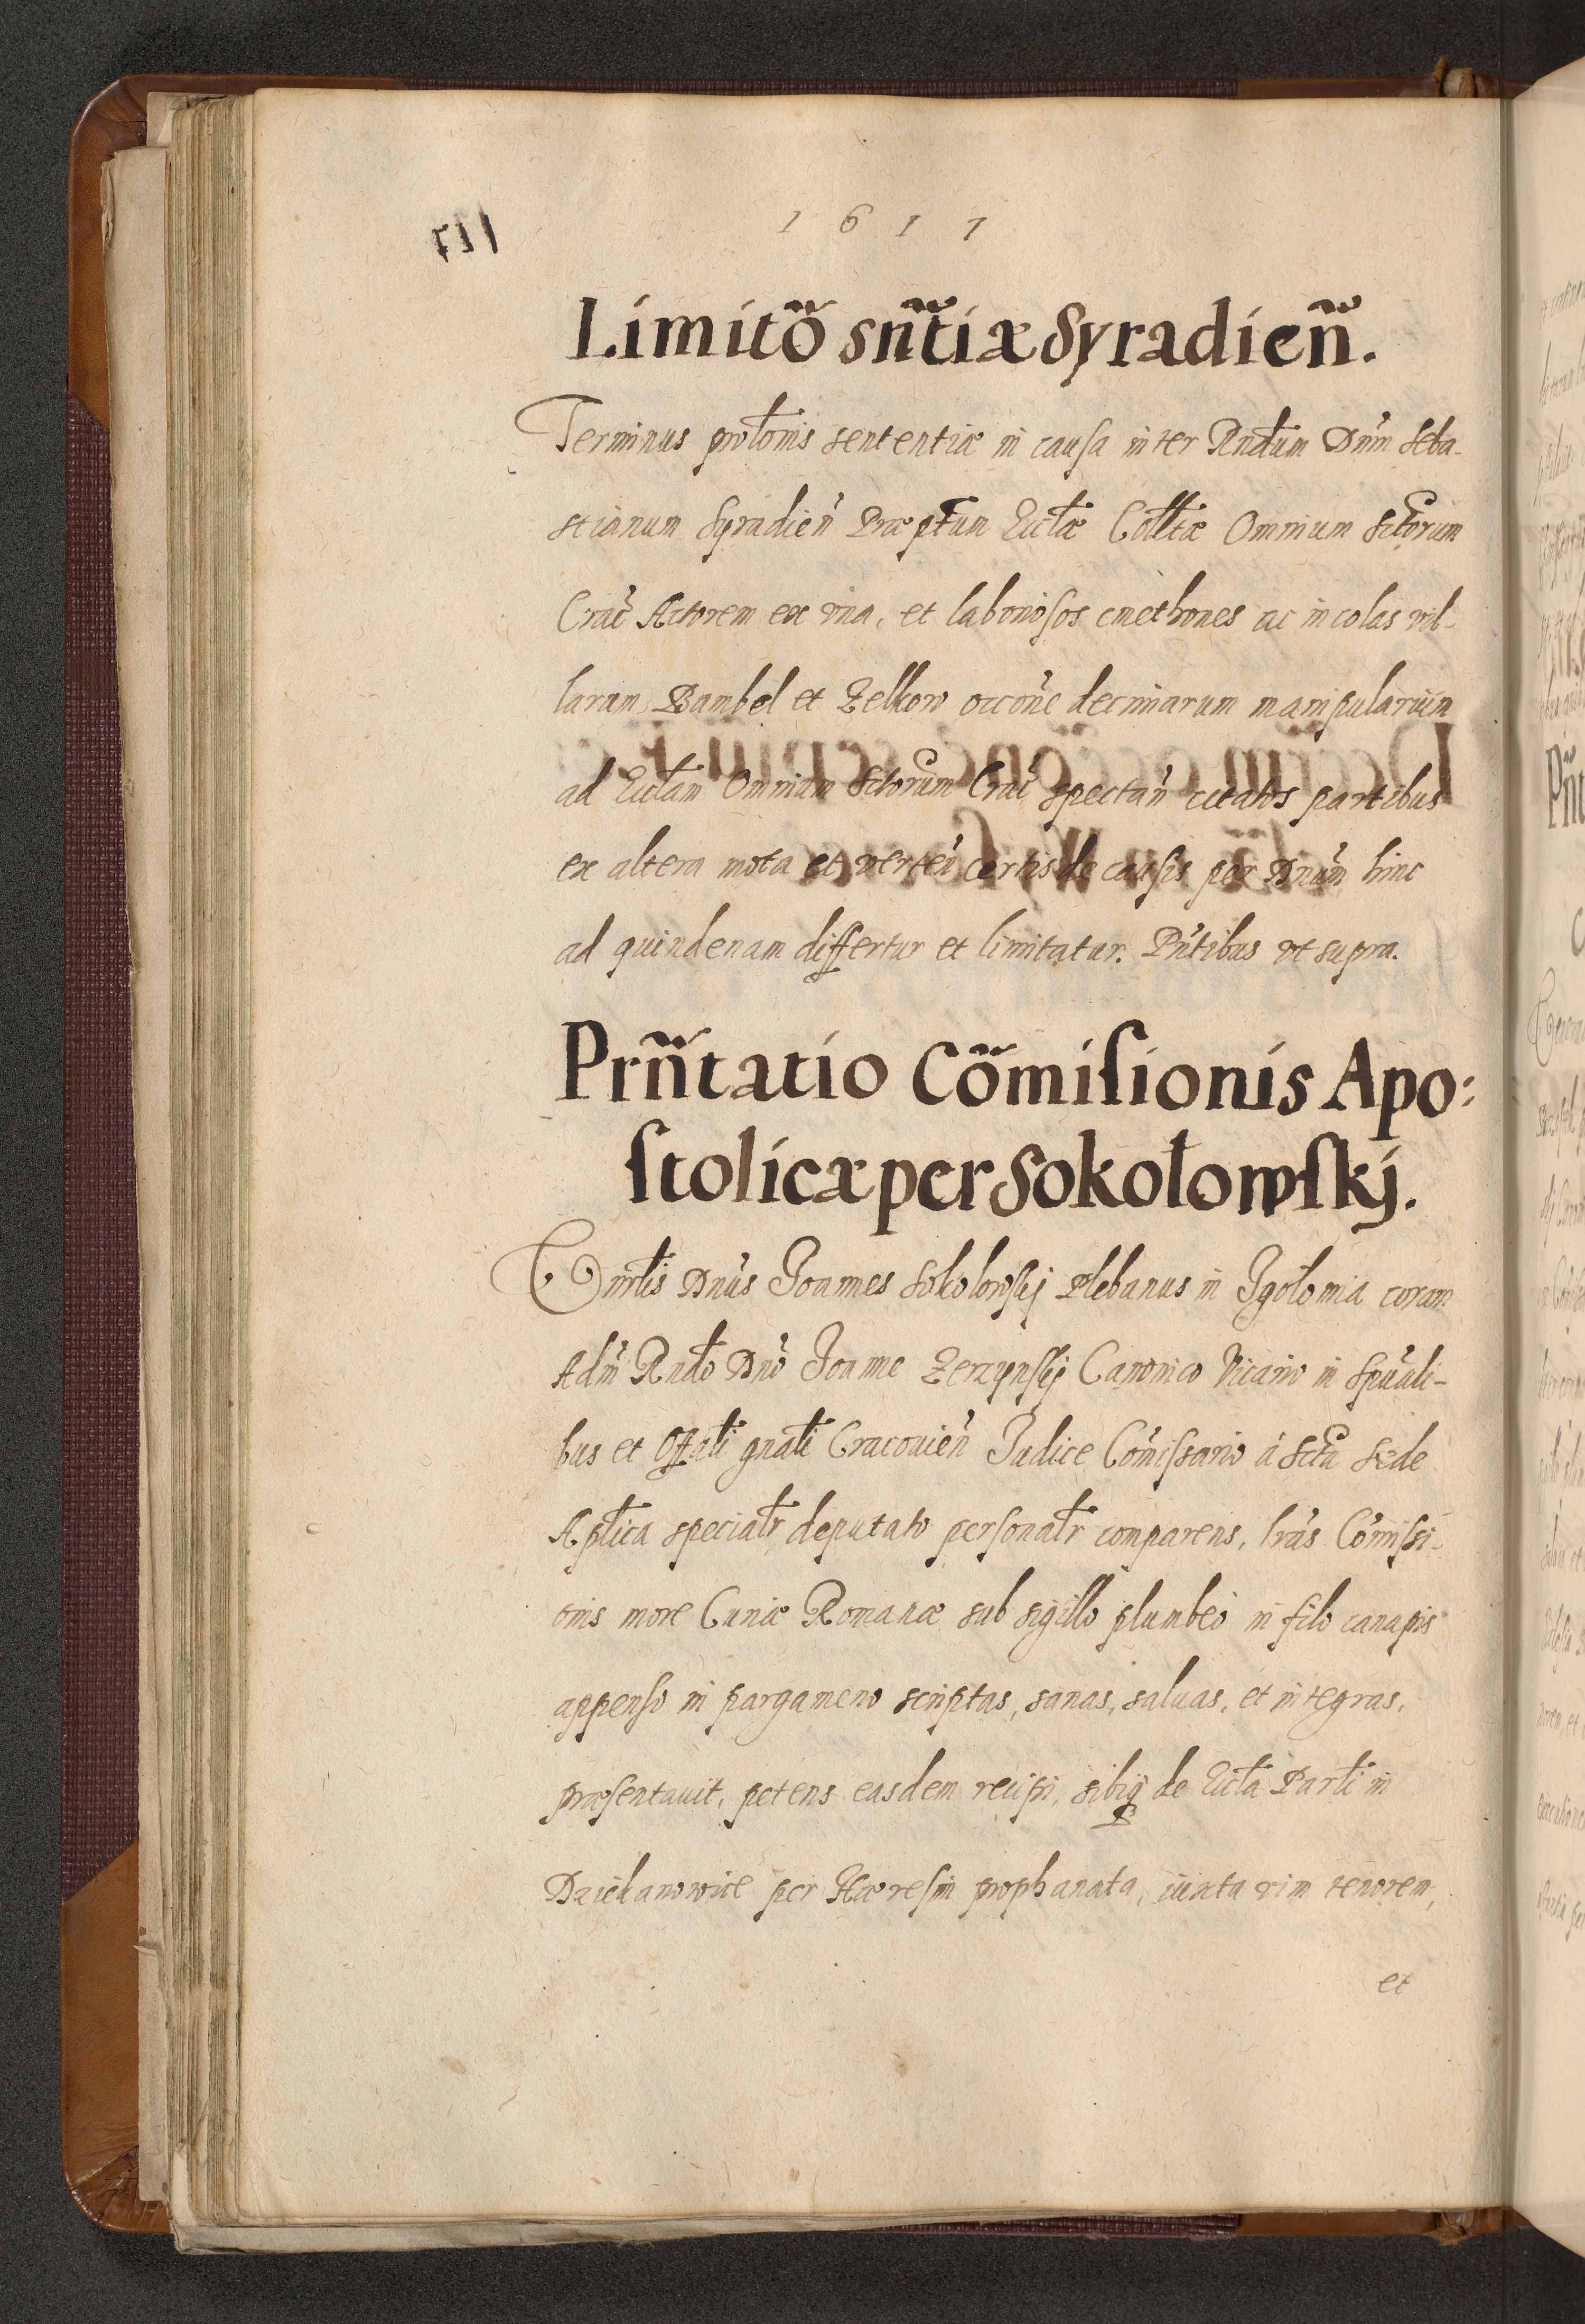 1 6 1 7
Limitõ sñtiæ Syradieñ.
Terminus prolonis sententiæ in causa inter Rndum Dnm Seba-
stianum Syradień Præptum Eccłæ Collłæ Omnium Sctorum
Crac̃ Actorem ex vna, et laboriosos cmethones ac incolas vil-
larum Bambel et Zelkow occone decimarum manipularium
ad Eccłam Omnium Sctorum Crac̃ spectan̄ citatos partibus
ex altera mota et verten̄ certis de causis per Dnum hinc
ad quindenam differtur et limitatur. Pñtibus vt supra.
Prñtatio Cõmisionis Apo:
stolicæ per Sokołowskj.
Dnus Joannes Sokolowskj Plebanus in Igołomia coram
Adm̃ Rndo Dno Joanne Zerzynskj Canonico Vicario in Spũali-
bus et Offäli gnäli Cracouień Judice Comissario á Scta Sede
Aplica speciałr deputato personałr comparens, lräs Comissi-
onis more Curiæ Romanæ sub sigillo plumbeo in filo canapis
appenso in pargameno scriptas, sanas, saluas, et integras,
præsentauit, petens easdem recipi, sibiq de Eccła Parłi in
Dziekanowice per Hæresim prophanata, iuxta vim tenorem,
et